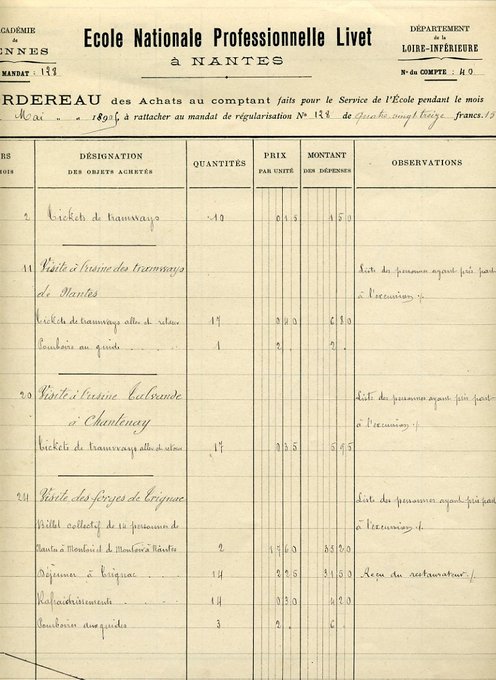 ACADÉMIE
de
RENNES
MANDAT : 128
Ecole Nationale Professionnelle Livet
à NANTES
DÉPARTEMENT
de la
LOIRE-INFÉRIEURE
N° du COMPTE : 40
RDEREAU des Achats au comptant faits pour le Service de l'École pendant le mois
Mai " " 189 , à rattacher au mandat de régularisation N° 128 de quatre vingt treize francs. 15
RS
MOIS
DÉSIGNATION
DES OBJETS ACHETÉS
QUANTITÉS
PRIX
PAR UNITÉ
MONTANT
DES DÉPENSES
OBSERVATIONS
2 Tickets de tramways 10 0 15 1 50
11 Visite à l'usine des tramways Liste des personnes ayant pris part
de Nantes à l'excursion ./.
Tickets de tramways aller et retour 17 0 40 6 80
Pourboire au guide 1 2 " 2 "
20 Visite à l'usine Talvande Liste des personnes ayant pris part
à Chantenay à l'excursion ./.
Tickets de tramways aller et retour 17 0 35 5 95
24 Visite des forges de Trignac Liste des personnes ayant pris part
Billet collectif de 14 personnes de à l'excursion ./.
Nantes à Montoir et de Montoir à Nantes 2 17 60 35 20
Déjeuner à Trignac 14 2 25 31 50 Reçu du restaurateur ./.
Rafraîchissements 14 0 30 4 20
Pourboires aux guides 3 2 " 6 "